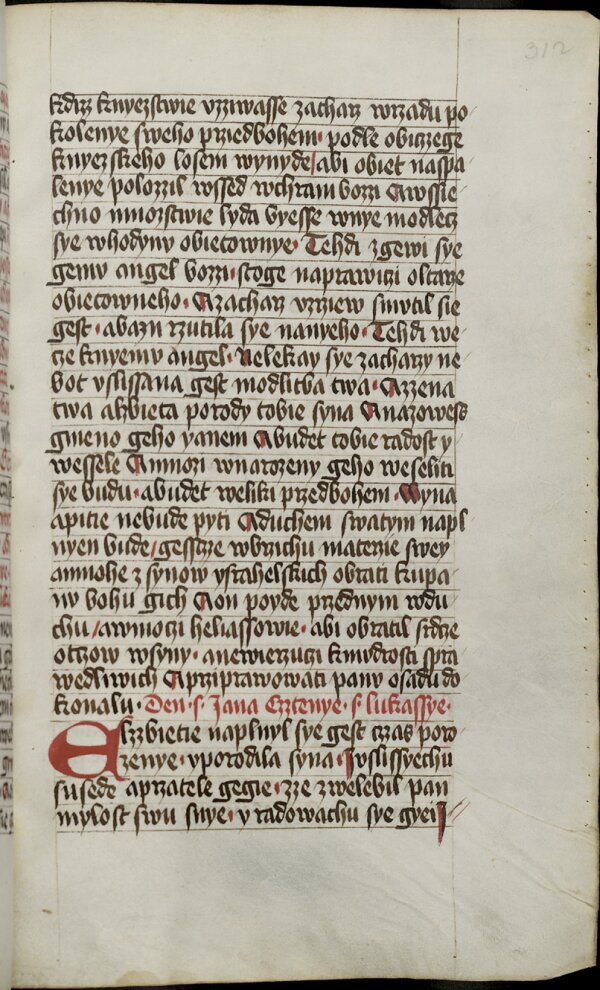 312
kdiz knyezstwie vzziwasse zacharz wrzadu po
kolenye sweho prziedbohem· podle obiczege
knyezskeho losem wynyde/ abi obiet naspa
lenye polozzil wssed wchram bozzi Awssie
chno mnozstwie lyda byesse wnye modlecz
sye whodynv obiecownye· Tehdi zgewi sye
gemv angel bozzi· stoge naprawiczi oltarze
obiecowneho· Azacharz vzrzew smvtil sie
gest· abazn rzutila sye nanyeho· Tehdi we
cze knyemv angel· Nelekay sye zacharzy ne
bot vslissana gest modlitba twa· Azzena
twa alzbieta porody tobie syna Anazowess
gmeno geho yanem Abudet tobie radost y
wessele Amnozi wnarozeny geho weseliti
sye budu· abudet weliki przedbohem· Wyna
apitie nebude pyti Aduchem swatym napl
nyen bude/ gesscze wbrzichu materze swey
amnohe z synow ysrahelskich obrati kupa
nv bohu gich Aon poyde przednym wdu
chu/ awmoczi heliassowie· abi obratil srdcze
otczow wsyny· anewierzuczi kmudrosti spra
wedliwich Aprziprawowati panv osadu do
konalu· Den· s· Jana Cztenye· s· lukassye·
Elzzbietie naplnyl sye gest czas poro
zenye· yporodila syna· Jvslissyechu
susede aprzatele gegie· zze zwelebil pan
mylost swu snye· y radowachu sye gyei J